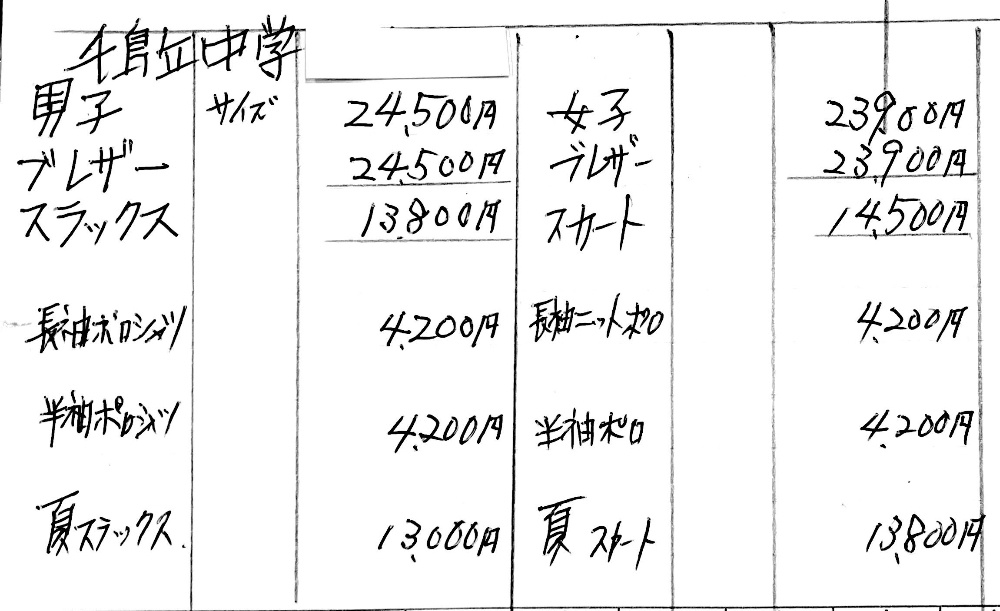 千鳥丘中学
男子 サイズ 24,500円 女子 23,900円
ブレザー 24,500円 ブレザー 23,900円
スラックス 13,800円 スカート 14,500円
長袖ポロシャツ 4,200円 長袖ニットポロ 4,200円
半袖ポロシャツ 4,200円 半袖ポロ 4,200円
夏スラックス 13,000円 夏スカート 13,800円